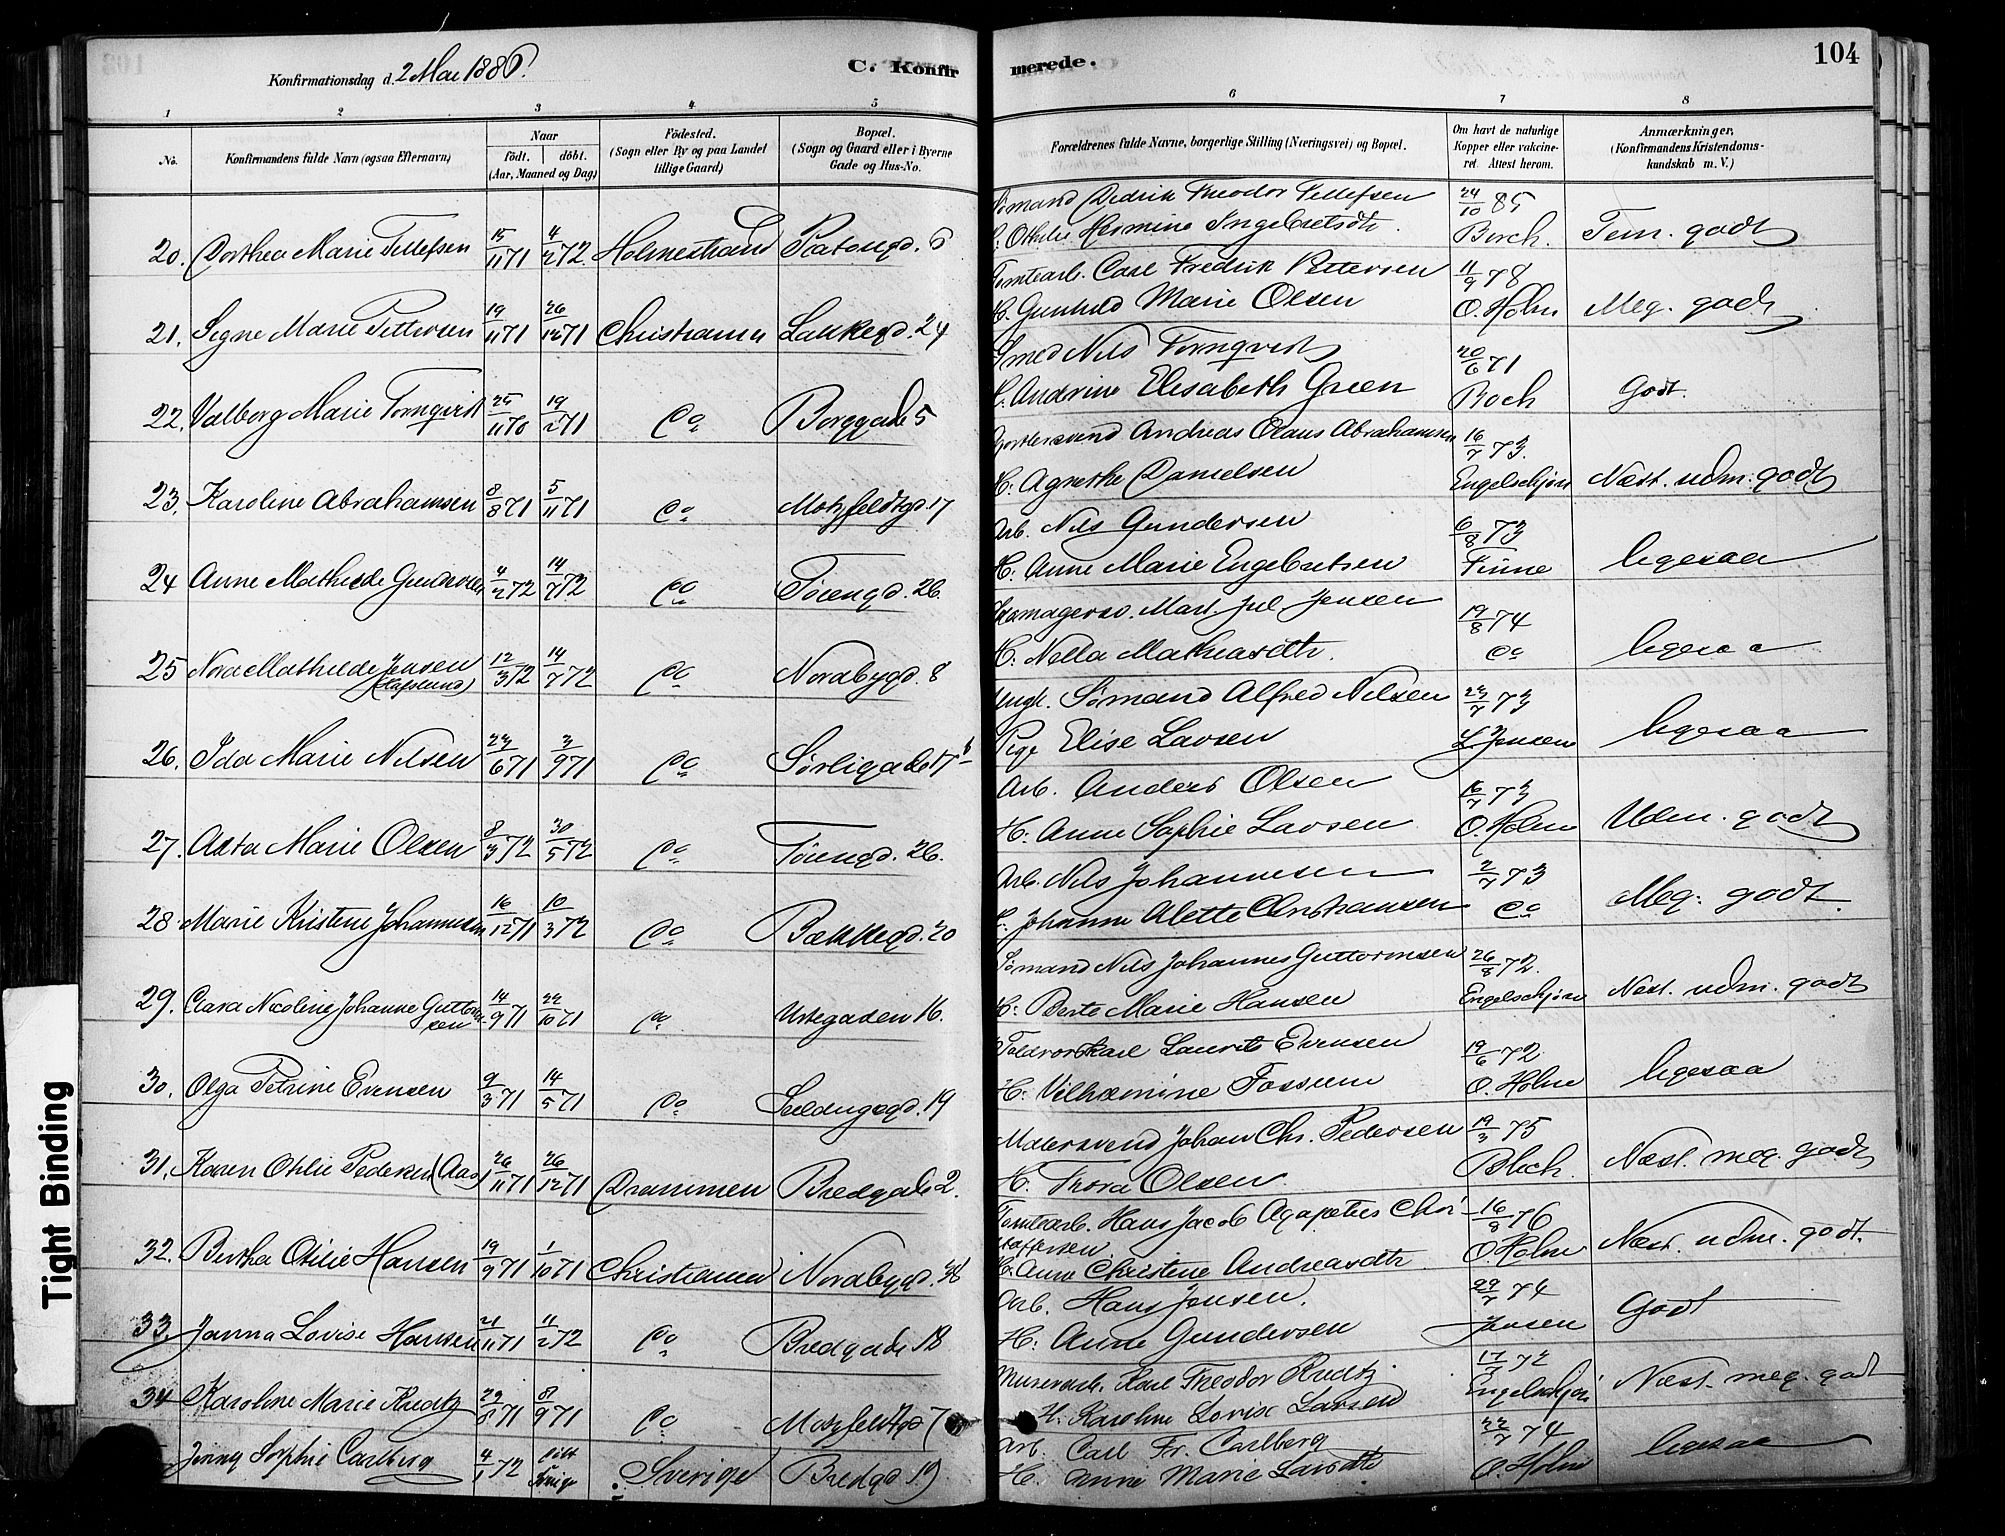 104
Konfirmationsdag d. 2 Mai 1886.
C. Konfirmerede.
1 2 3 4 5 6 7 8
No.
Konfirmandens fulde Navn (ogsaa Efternavn)
Naar
født. døbt.
(Aar, Maaned og Dag)
Fødested.
(Sogn eller By og paa Landet
tillige Gaard)
Bopæl.
(Sogn og Gaard eller i Byerne
Gade og Hus-No.
Forældrenes fulde Navne, borgerlige Stilling (Næringsvei) og Bopæl.
Om havt de naturlige
Kopper eller vakcine-
ret. Attest herom.
Anmærkninger,
(Konfirmandens Kristendoms-
kundskab m. V.)
Sømand Dedrik Theodor Tellefsen 24/10 85
20. Dorthea Marie Tellefsen 15/11 71 4/2 72 Holmestrand Platougd. 6 H. Othilie Hermine Ingebretsdtr. Borch. Tem. godt
Tomtearb. Carl Fredrik Pettersen 11/9 78
21. Signe Marie Pettersen 19/11 71 26/12 71 Christiania Lakkegd. 24 H. Gunhild Marie Olsen O. Holm Meg. godt
Smed Nils Tornqvist 20/6 71
22. Valborg Marie Tornqvist 25/11 70 19/2 71 do Borggade 5 H. Andrine Elisabeth Green Boch Godt.
Gjørtlersvend Andreas Olaus Abrahamsen 16/7 73.
23. Karoline Abrahamsen 8/8 71 5/11 71 do Motzfeldtgd. 17 H. Agnethe Danielsen Engelschjøn Næst. udm. godt
Arb. Nils Gundersen 6/8 73
24 Anne Mathilde Gundersen 4/2 72 14/7 72 do Tøiengd. 26. H. Anne Marie Engebretsen Finne ligesaa
Skomagersv. Mart. Jul Jensen 19/8 74
25 Nora Mathilde Jensen 12/3 72 14/7 72 do Nordbygd. 8 H. Nella Mathiasdtr. do ligesaa
Ungk. Sømand Alfred Nilsen 23/7 73
26. Ida Marie Nilsen 23/6 71 3/9 71 do Sørligade 17 b Pige Elise Larsen L. Jensen ligesaa
Arb. Anders Olsen 16/7 73
27. Asta Marie Olsen 8/3 72 30/5 72 do Tøiengd. 26. H. Anne Sophie Larsen O. Holm Udm. godt
Arb. Nils Johannesen 2/7 73
28. Marie Kristine Johannesen 16/12 71 10/3 72 do Bækkegd. 20 H. Johanne Alette Christiansen do Meg. godt.
Sømand Nils Johannes Guttormsen 26/8 72.
29. Clara Nicoline Johanne Guttorm- 14/9 71 22/10 71 do Urtegaden 16. H. Berte Marie Hansen Engelschjøn Næst. udm. godt
sen
Toldrorskarl Laurits Evensen 19/6 72
30. Olga Petrine Evensen 9/3 71 14/5 71 do 19 H. Vilhelmine Fossum O. Holm ligesaa
Malersvend Johan Chr. Pedersen 19/3 75
31. Karen Othilie Pedersen (Aas) 26/11 71 26/12 71 Drammen Bredgade 2. H. Thora Olsen Bloch. Næst. meg. godt
Tomtearb. Hans Jacob Agapetus Chri- 16/8 76
stoffersen
32. Bertha Otilie Hansen 19/9 71 1/10 71 Christiania Nordbygd. 38 H. Anne Christine Andreasdtr. O. Holm Næst. udm. godt.
Arb. Hans Jensen. 29/7 74
33. Janna Lovise Hansen 21/11 71 11/2 72 do Bredgade 18 H. Anne Gundersen Jensen Godt
Murerarb. Karl Theodor Kredtz 17/7 72
34 Karoline Marie Kredtz 29/6 71 8/9 71 do Motzfeldtgd 7 H. Karoline Lovise Larsen Engelschjøn Næst. meg. godt
Arb. Carl Fr. Carlberg 22/7 74
Jenny Sophie Carlberg 4/1 72 døbt i Sverige Sverige Bredgd. 19 H. Anne Marie Larsdtr. O. Holm ligesaa
Tight Binding